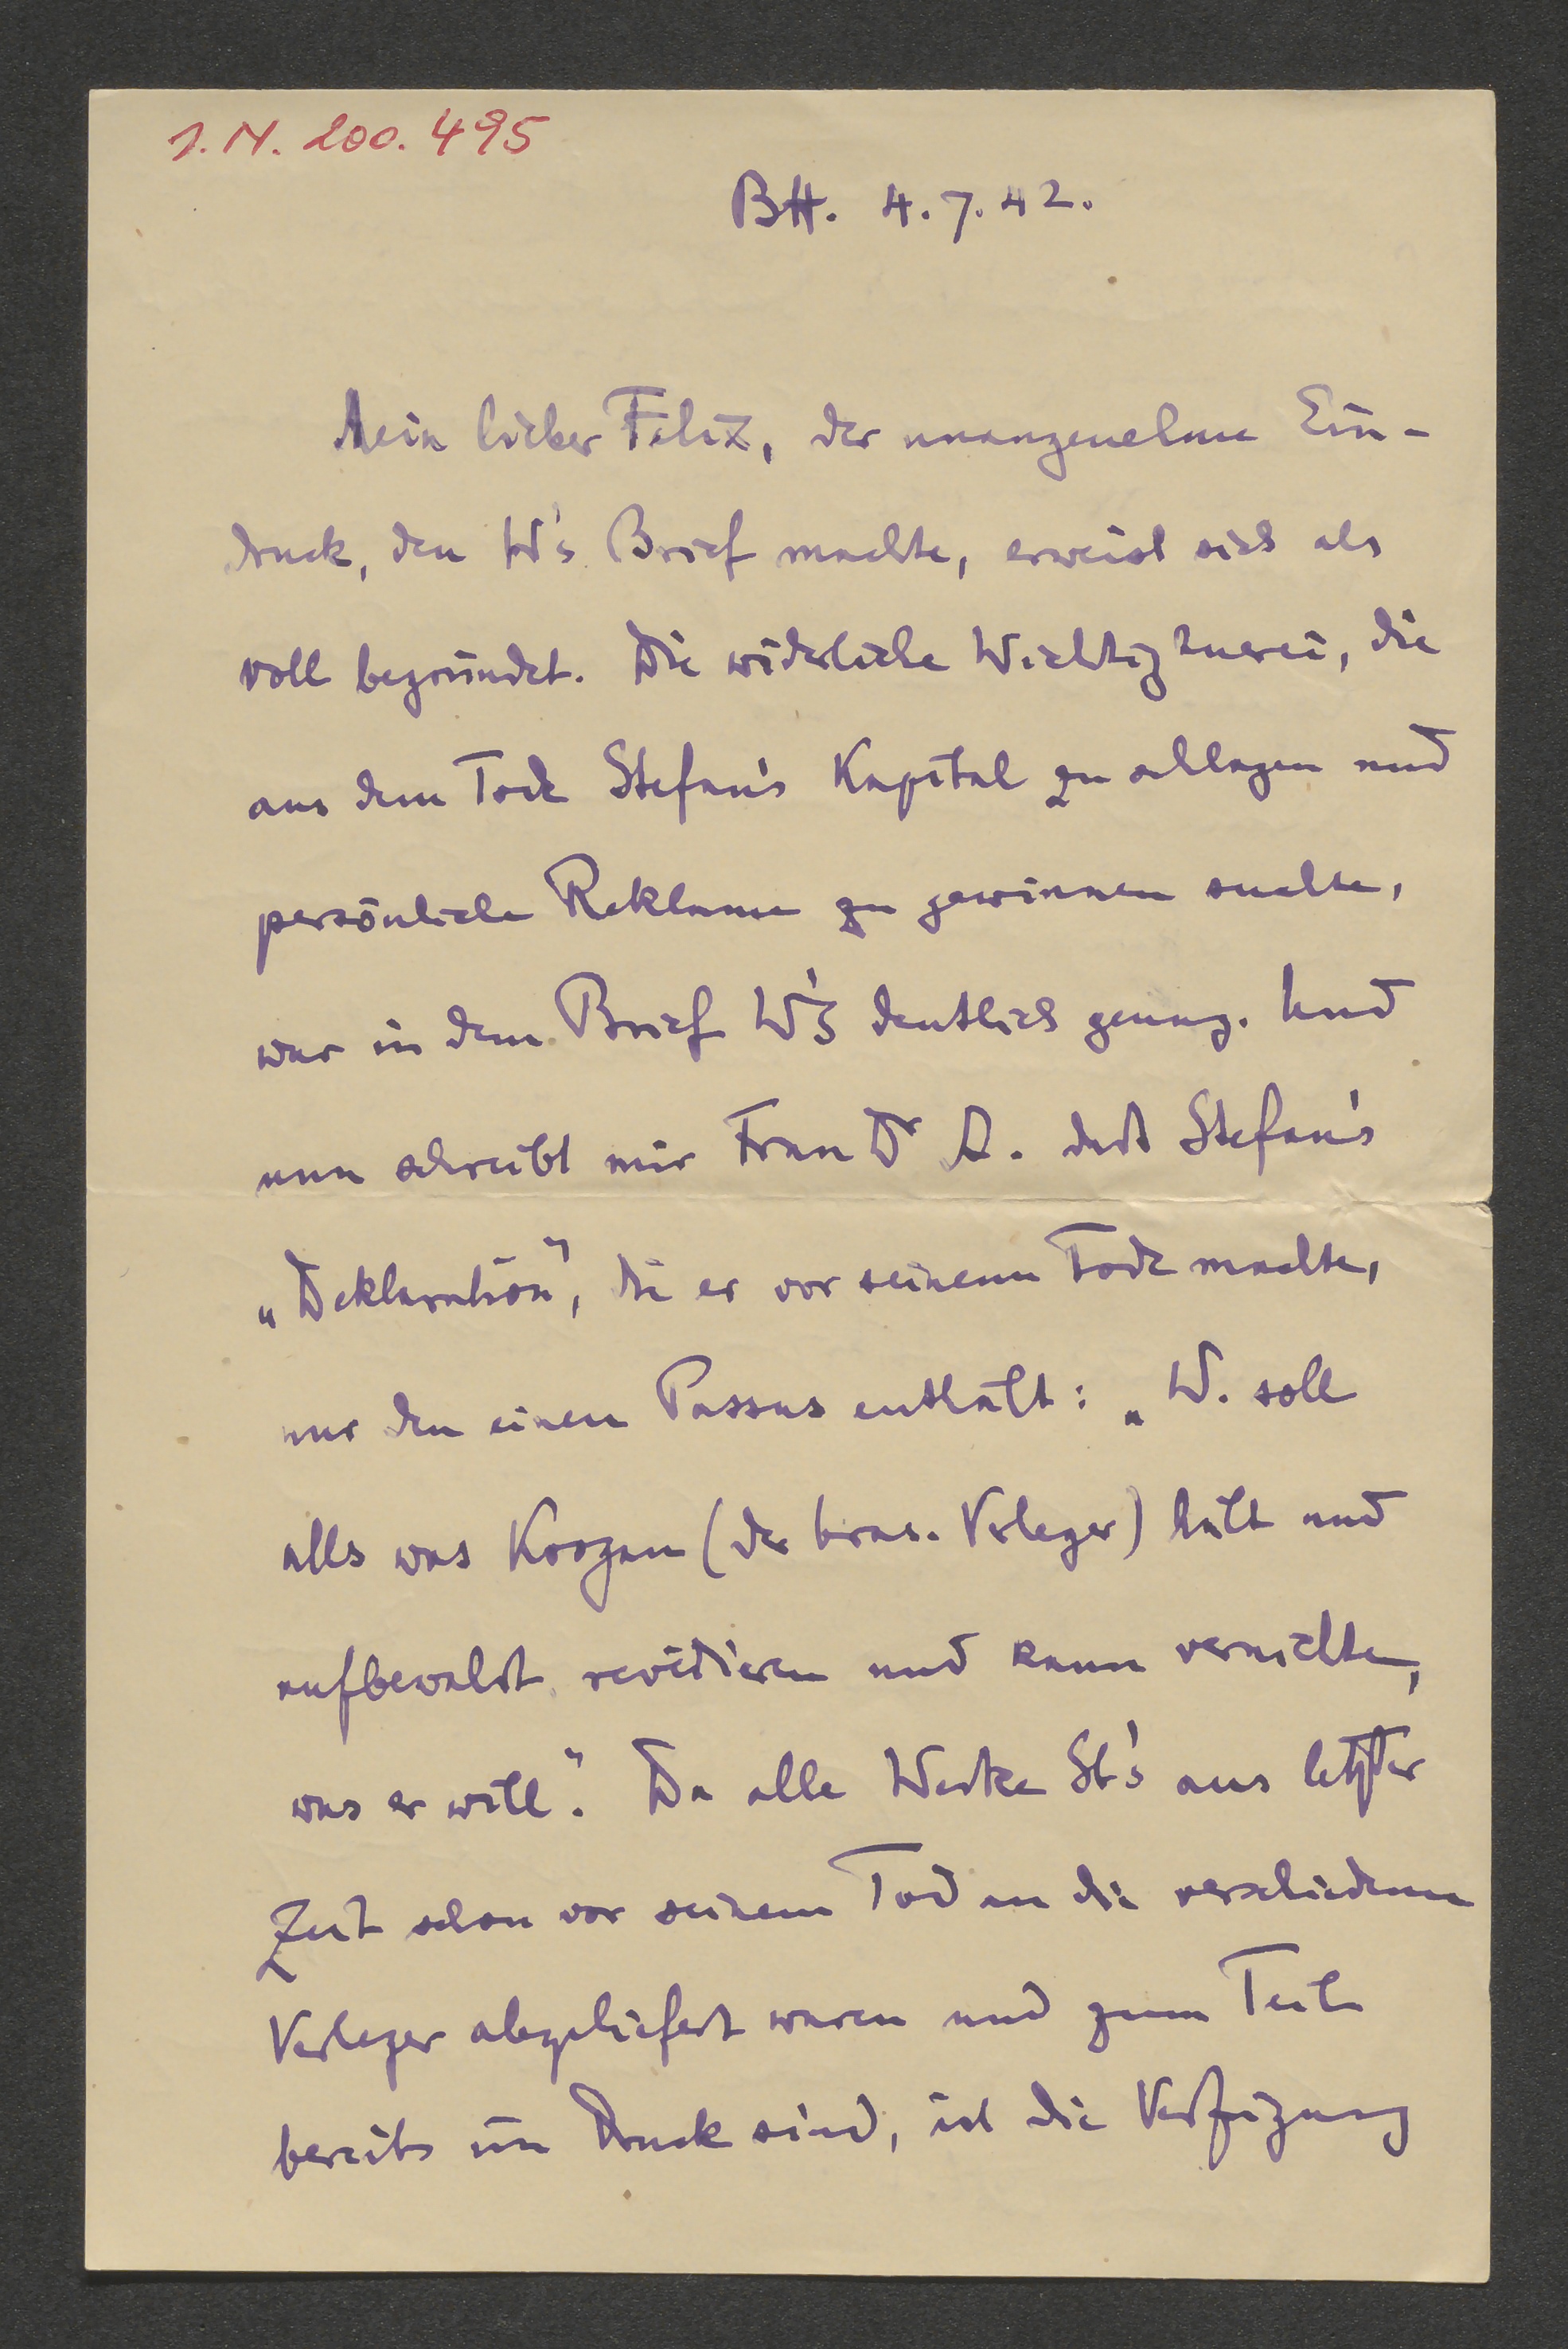 J.N. 200.495
BH. 4.7.42.
Mein lieber Felix, der unangenehme Ein-
druck, den W's Brief machte, erweist sich als
voll begründet. Die widerliche Wichtigtuerei, die
aus dem Tode Stefan's Kapital zu schlagen und
persönliche Reklame zu gewinnen suchte,
war in dem Brief W's deutlich genug. Und
nun schreibt mir Frau Dr A. dass Stefan's
„Deklaration", die er vor seinem Tode machte,
nur den einen Passus enthält: „W. soll
alls was Koogan (der bras. Verleger) hält und
aufbewahrt revidieren und kann vernichten,
was er will". Da alle Werke St's aus letzter
Zeit schon vor seinem Tod an die verschiedenen
Verleger abgeliefert waren und zum Teil
bereits im Druck sind, ist die Verfügung